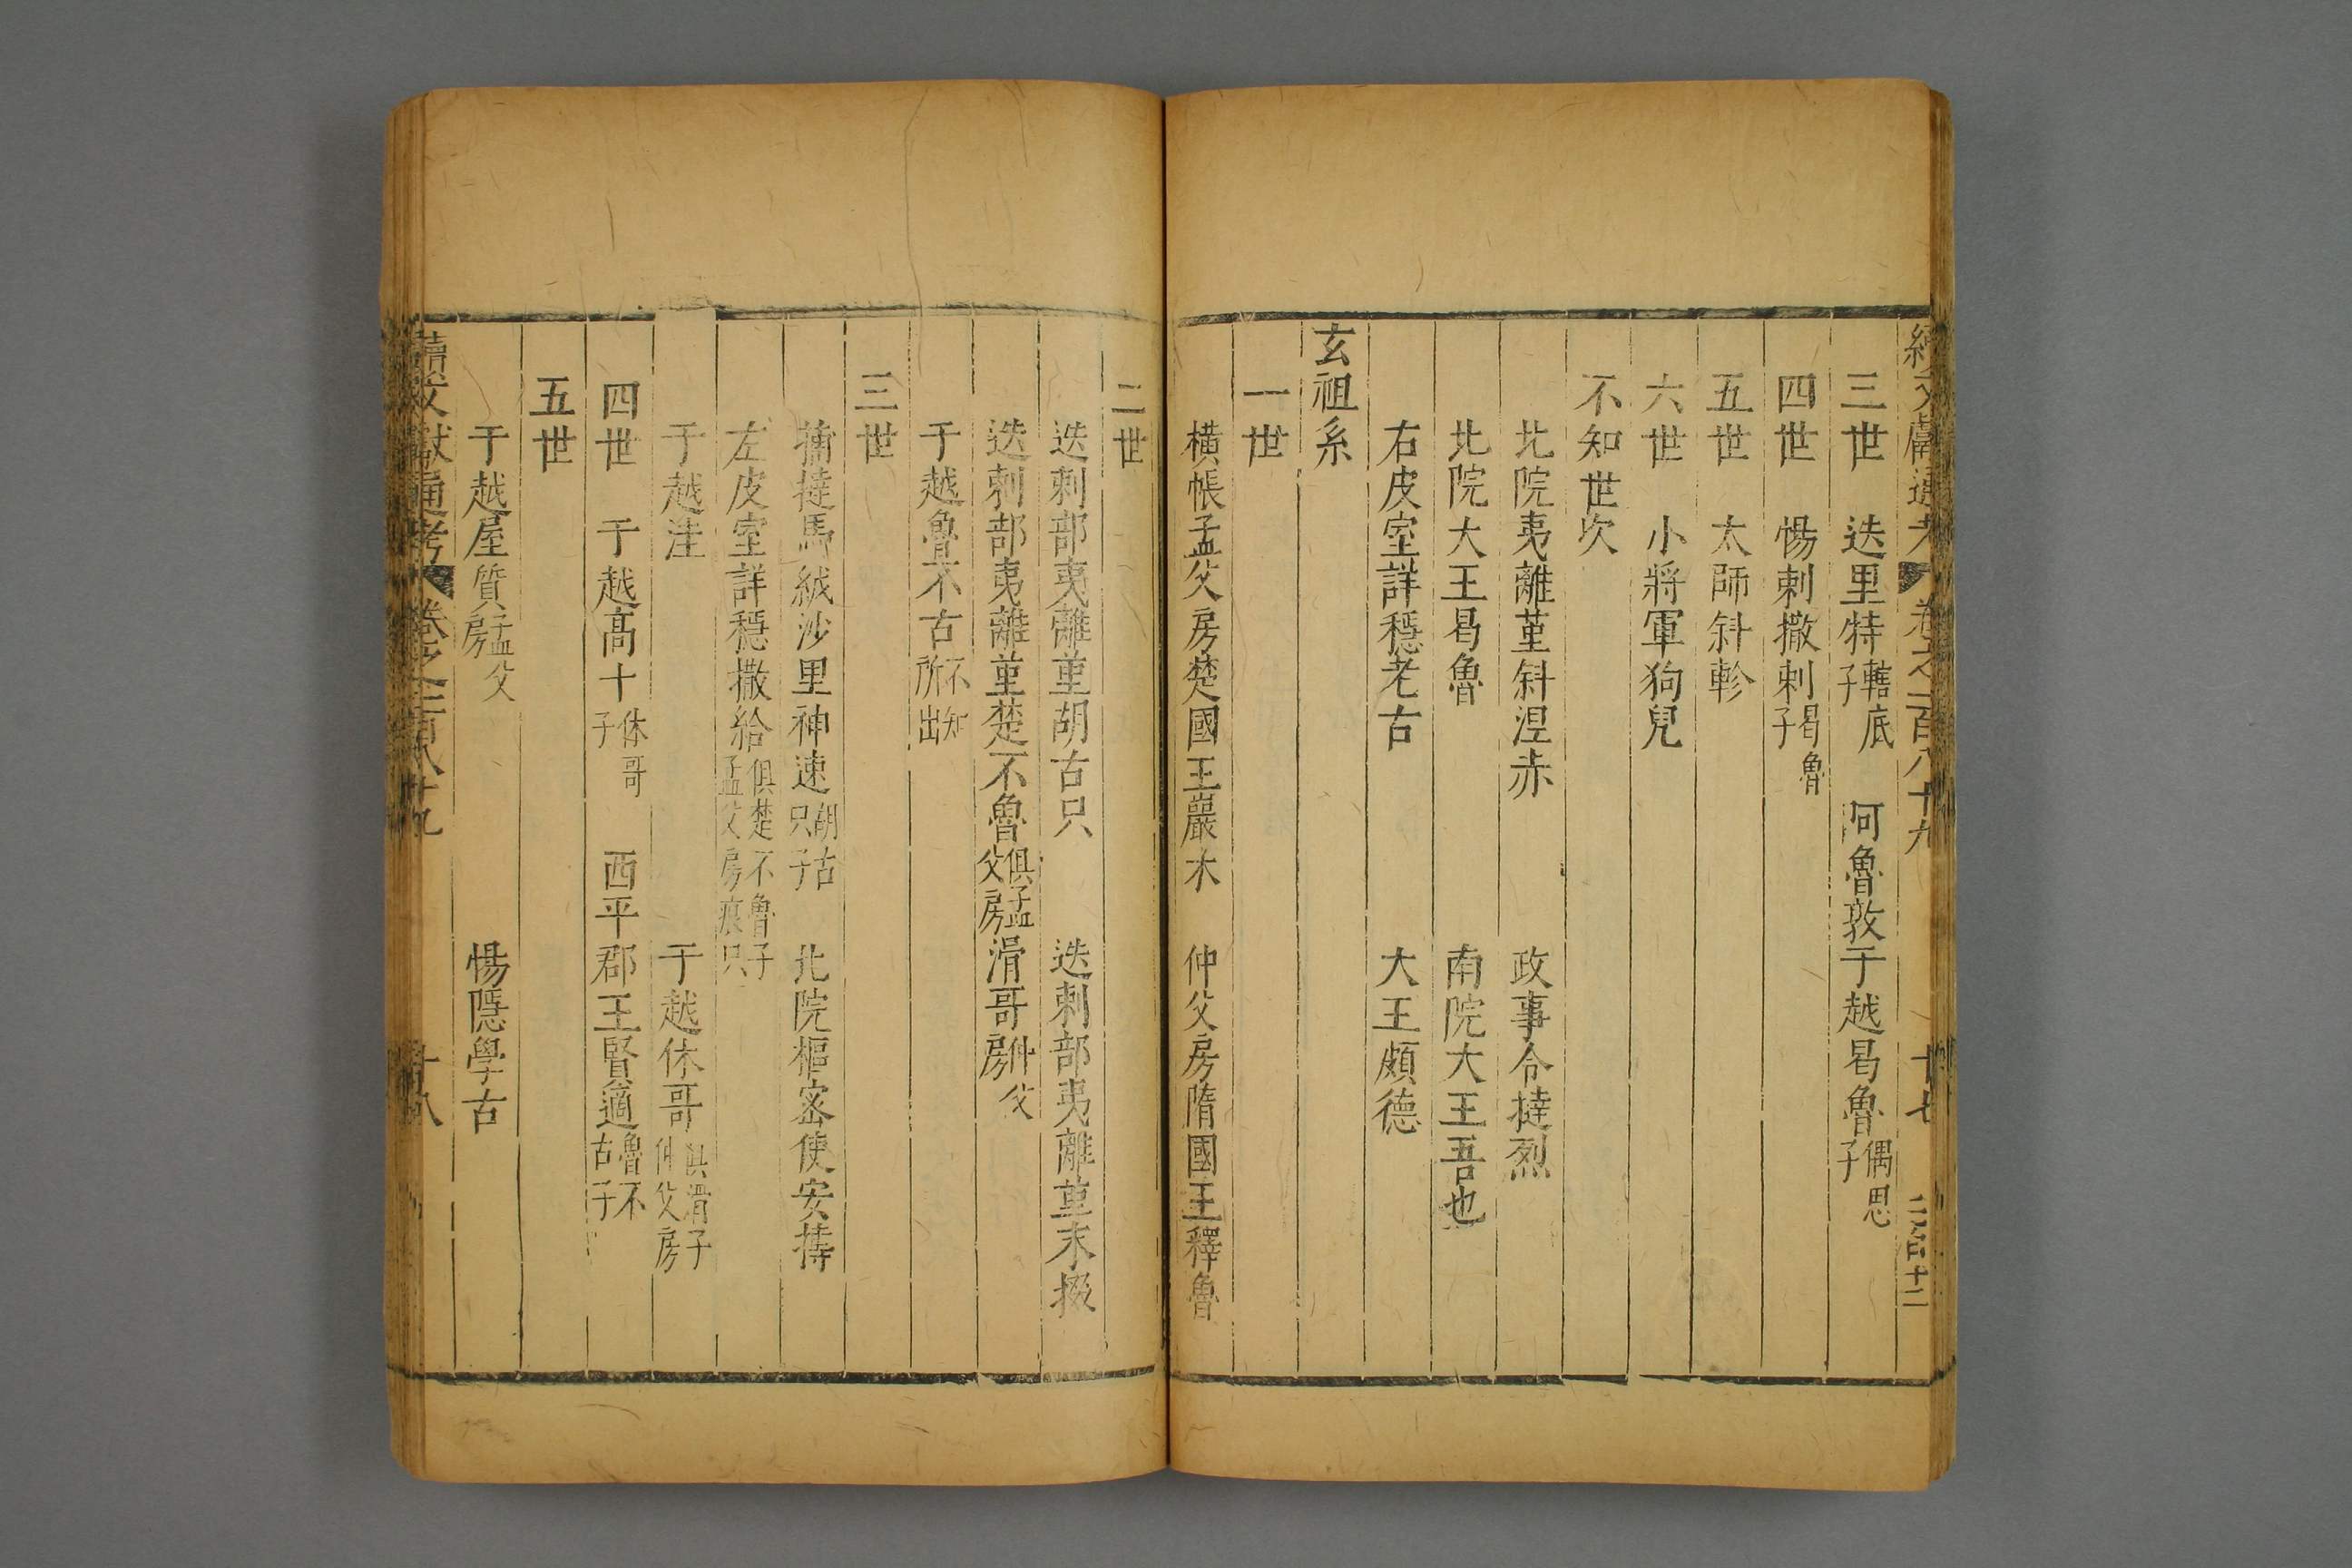 續文獻通考 卷之一百八十九 十七
三世 迭里特轄底子 阿魯敦于越曷魯偶思子
四世 惕剌撒剌曷魯子
五世 太師斜軫
六世 小將軍狗兒
不知世次
北院夷離堇斜涅赤 政事令撻烈
北院大王曷魯 南院大王吾也
右皮室詳穩老古 大王頗德
玄祖系
一世
橫帳孟父房楚國王巖木 仲父房隋國王釋魯
二世
迭剌部夷離堇胡古只 迭剌部夷離堇末掇
迭剌部夷離堇楚不魯俱孟父房 滑哥仲父房
于越魯不古不知所出
三世
撻馬絨沙里神速胡古只子 北院樞密使安摶
左皮室詳穩撒給俱楚不魯子孟父房痕只
于越洼 于越休哥俱滑子仲父房
四世 于越高十休哥子 西平郡王賢適魯不古子
五世
于越屋質孟父房 惕隱學古
續文獻通考 卷之一百八十九 十八